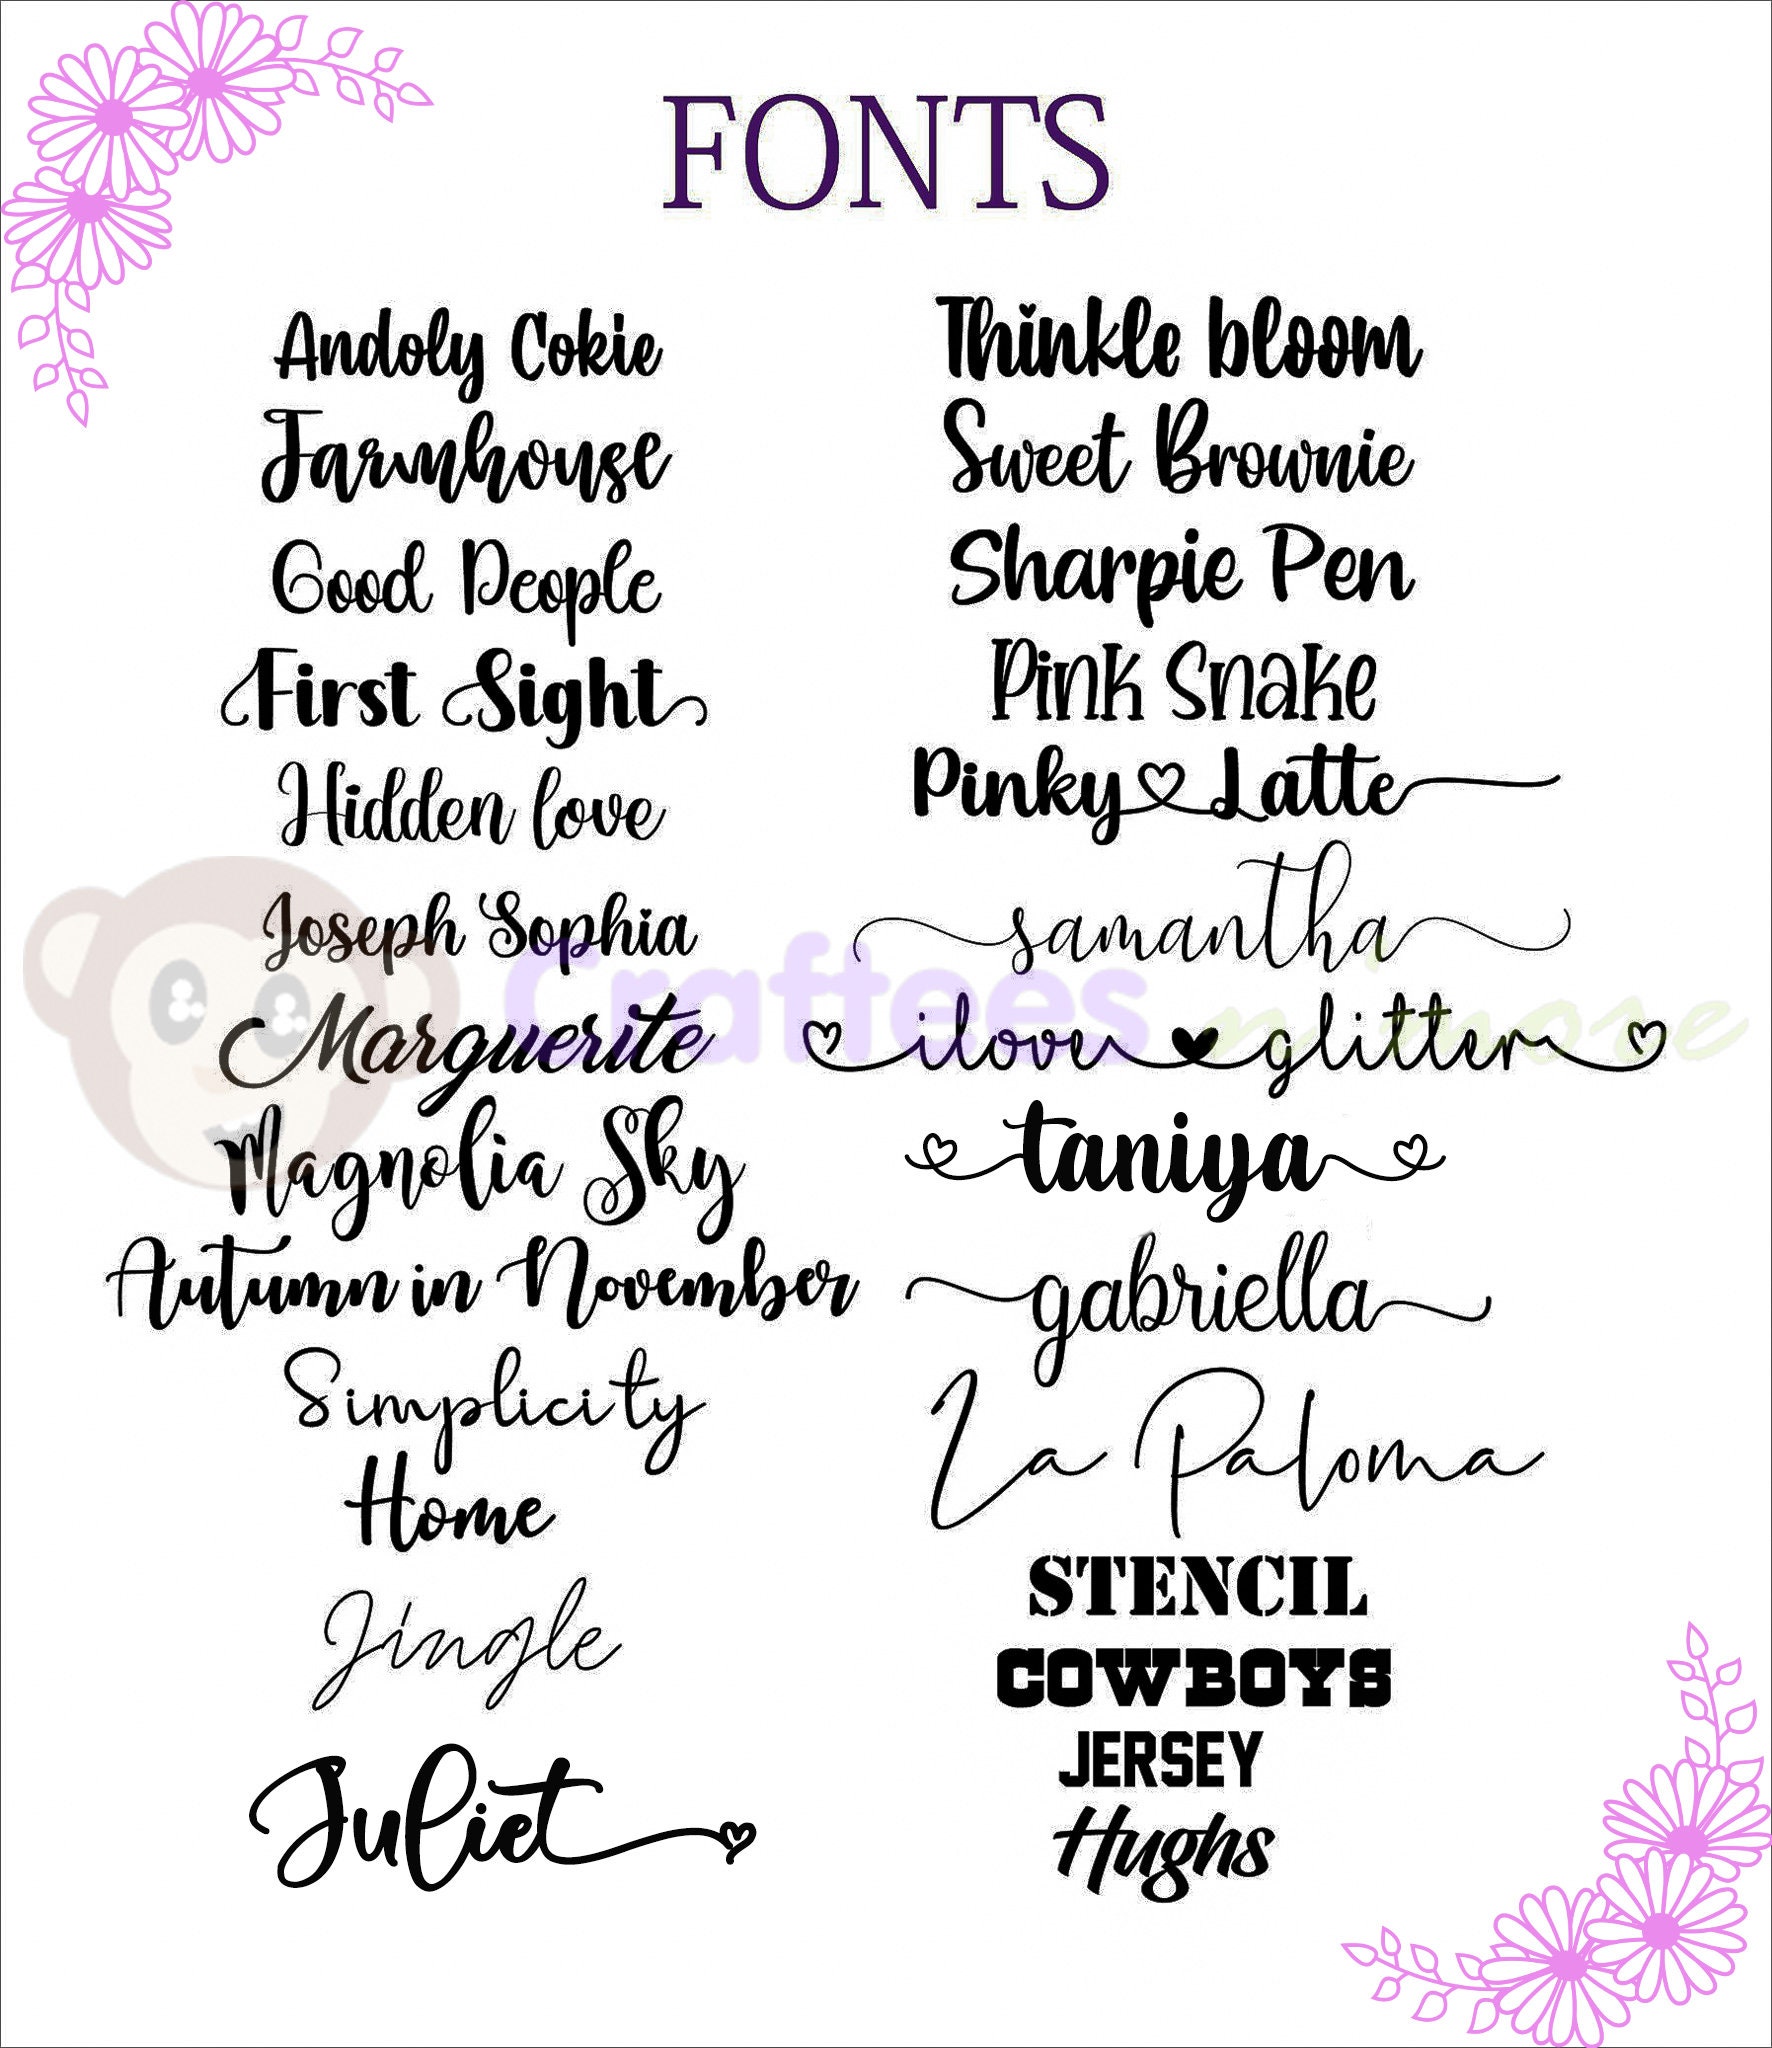 FONTS
Andoly Cokie
Farmhouse
Good People
First Sight
Hidden love
Joseph Sophia
Marguerite
Magnolia Sky
Autumn in November
Simplicity
Home
Jingle
Juliet
Thinkle bloom
Sweet Brownie
Sharpie Pen
Pink Snake
Pinky Latte
samantha
ilove glitter
taniya
gabriella
La Paloma
STENCIL
COWBOYS
JERSEY
Hughs
Craftees n'more